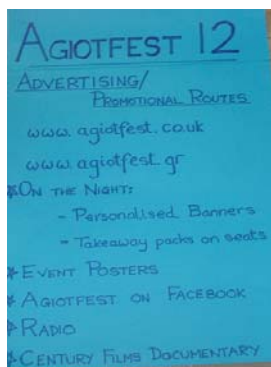 AGIOTFEST 12
ADVERTISING/
PROMOTIONAL ROUTES
www.agiotfest.co.uk
www.agiotfest.gr
*ON THE NIGHT:
- Personalised Banners
- Takeaway packs on seats
*EVENT POSTERS
*AGIOTFEST ON FACEBOOK
*RADIO
*CENTURY FILMS DOCUMENTARY